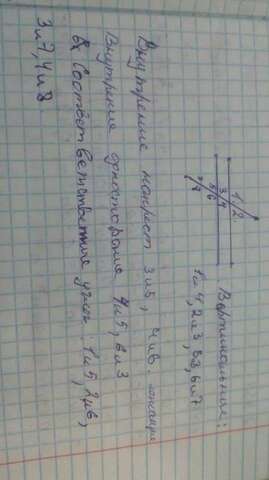 1 2
3 4
5 6
7 8
Вертикальные:
1 и 4, 2 и 3, 5 8, 6 и 7
Внутренние накрест 3 и 5, 4 и 6. лежащие
Внутренние односторонние 4 и 5, 6 и 3
Соответственные углы: 1 и 5, 2 и 6,
3 и 7, 4 и 8.